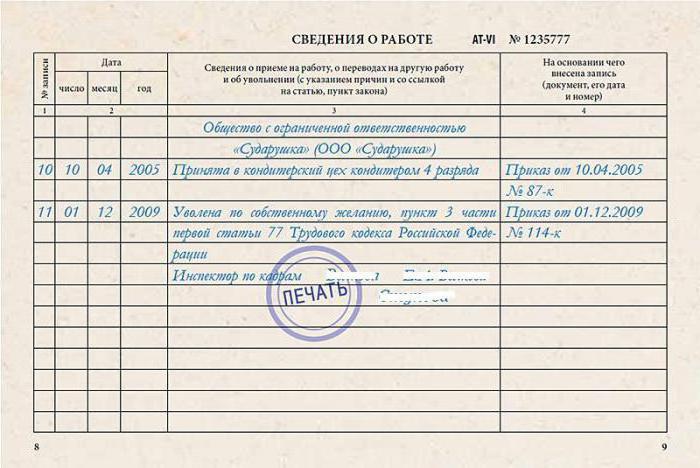 СВЕДЕНИЯ О РАБОТЕ АТ-VI № 1235777
№ записи
Дата
число месяц год
Сведения о приеме на работу, о переводах на другую работу
и об увольнении (с указанием причин и со ссылкой
на статью, пункт закона)
На основании чего
внесена запись
(документ, его дата
и номер)
1 2 3 4
Общество с ограниченной ответственностью
«Сударушка» (ООО «Сударушка»)
10 10 04 2005 Принята в кондитерский цех кондитером 4 разряда Приказ от 10.04.2005
№ 87-к
11 01 12 2009 Уволена по собственному желанию, пункт 3 части Приказ от 01.12.2009
первой статьи 77 Трудового кодекса Российской Феде- № 114-к
рации
Инспектор по кадрам
ПЕЧАТЬ
8 9